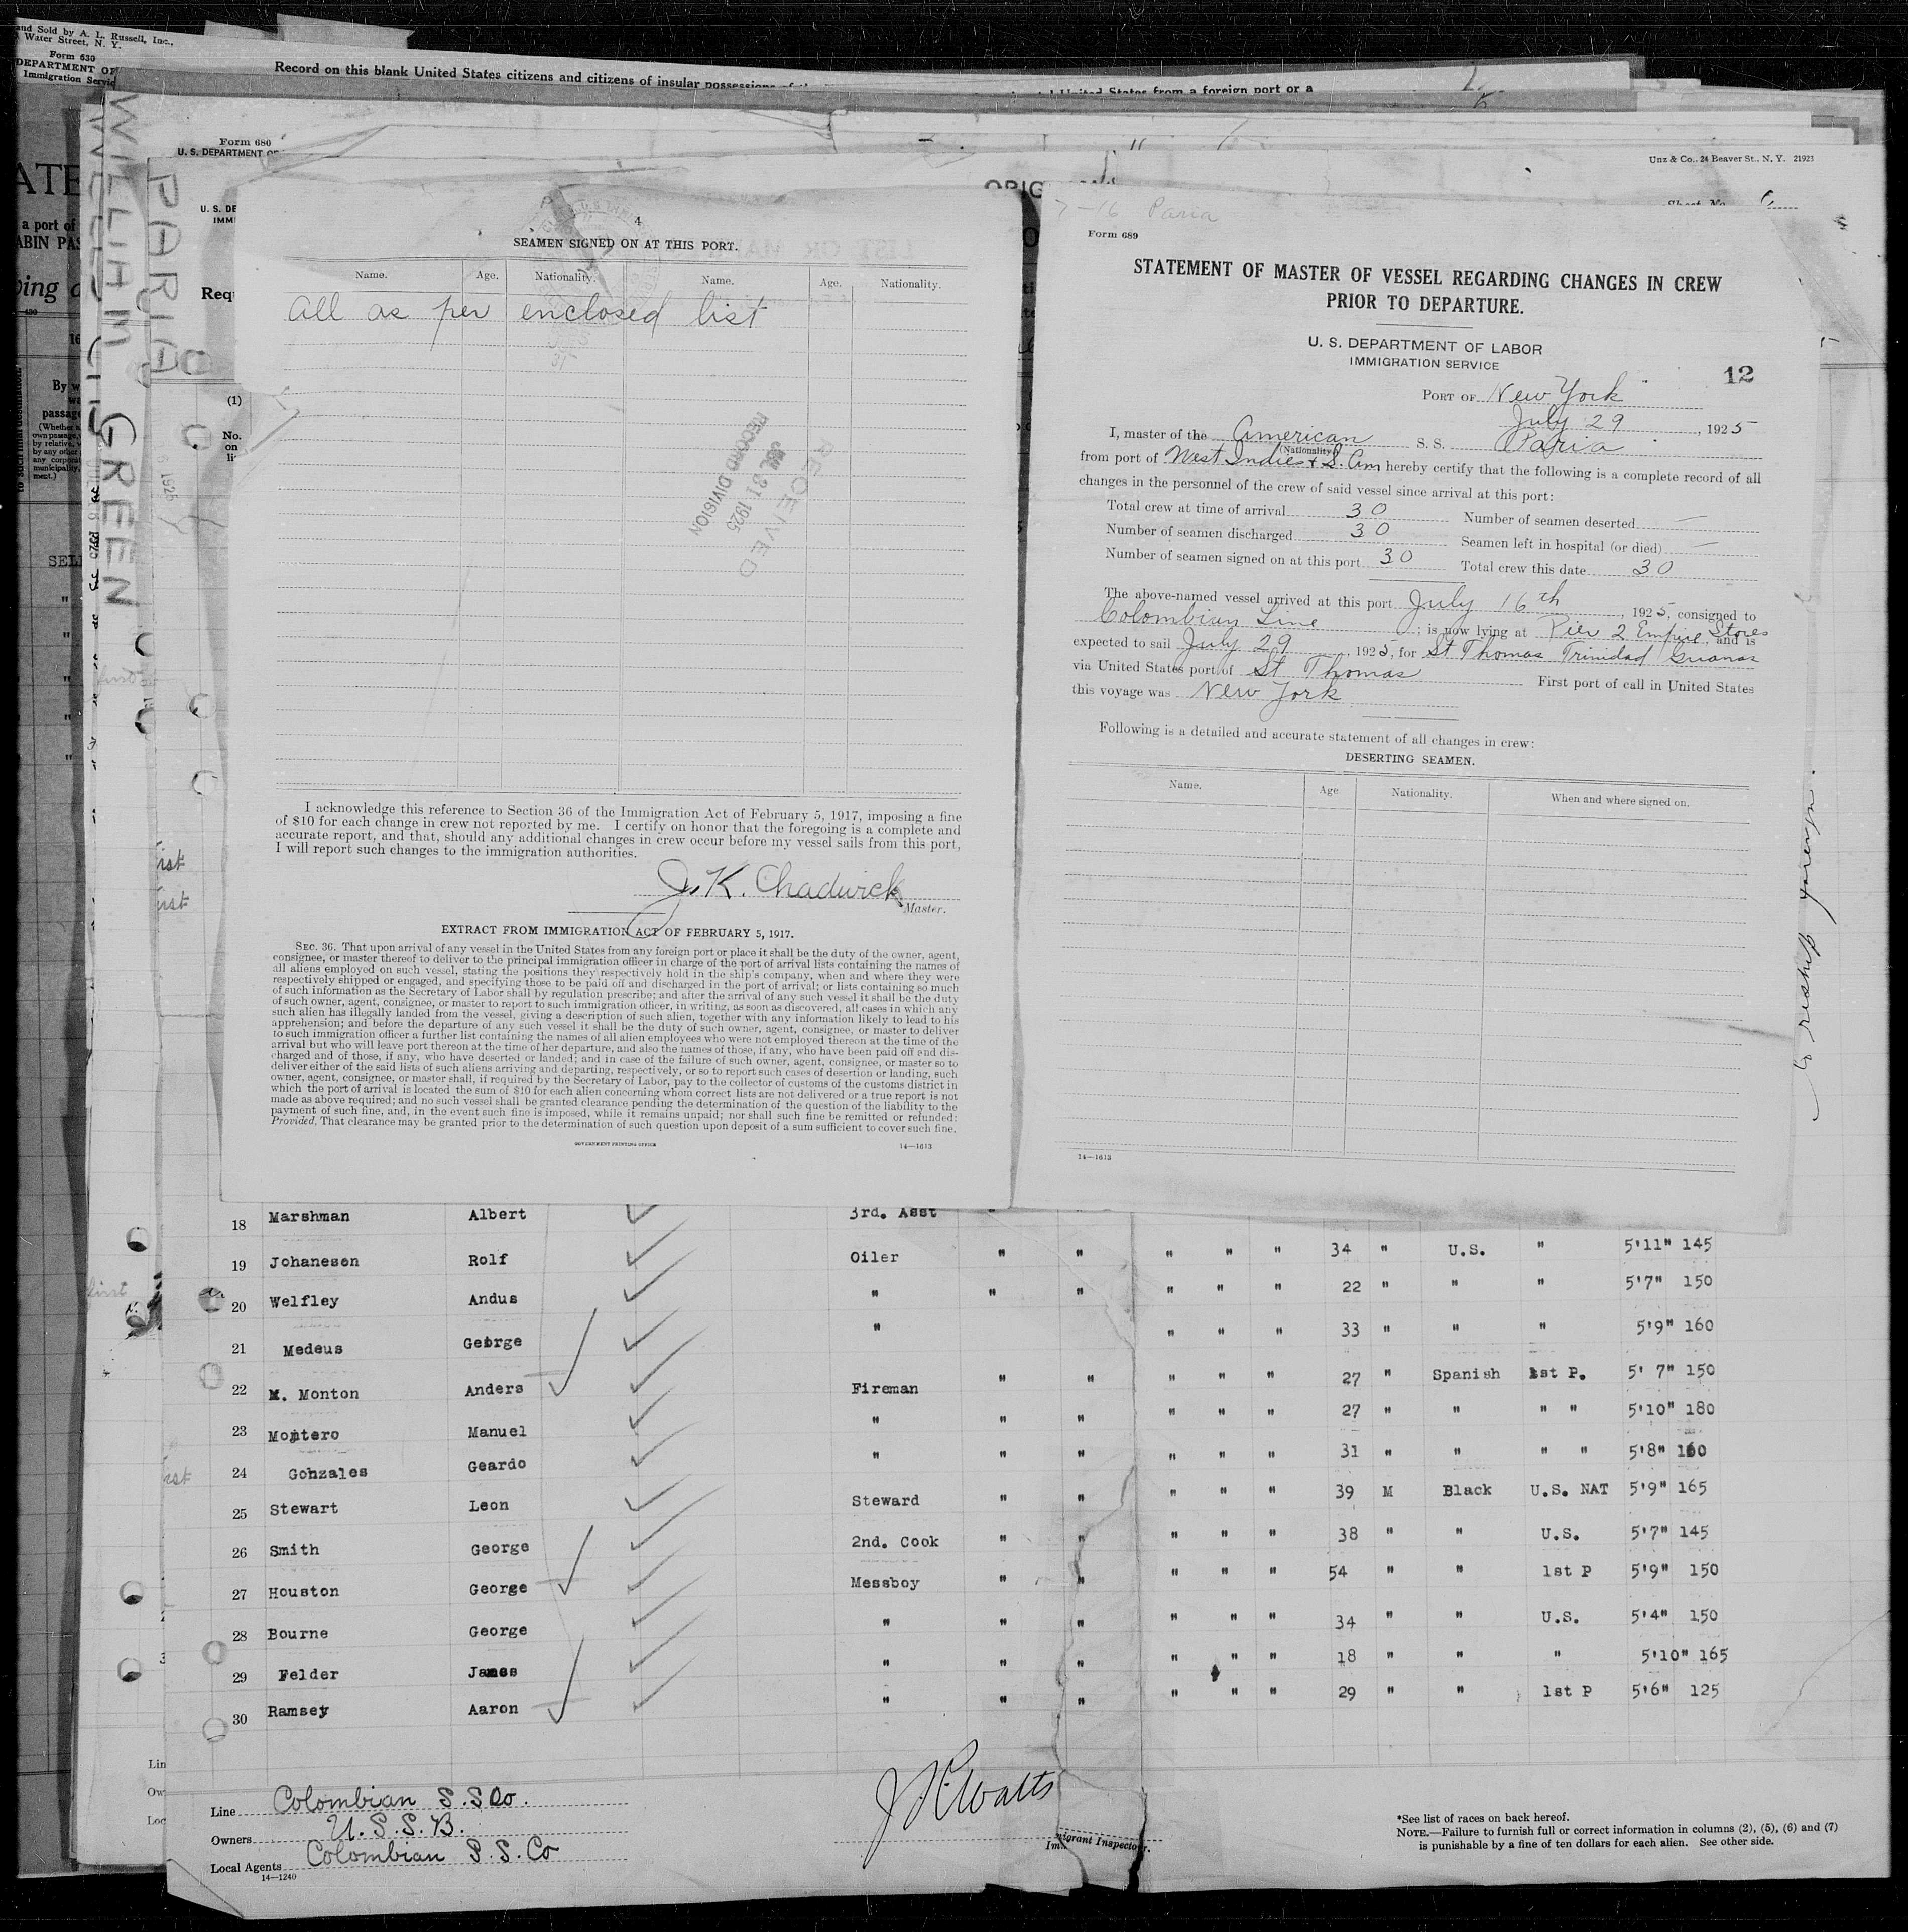 and Sold by A. L. Russell, Inc.,
Water Street, N. Y.
Form 630
DEPARTMENT OF
Immigration Servic
Record on this blank United States citizens and citizens of insular possessions
United States from a foreign port or a
Form 680
U. S. DEPARTMENT OF
Unz & Co., 24 Beaver St., N. Y. 21923
ORIG
Sheet No. 6
WILLIAM GREEN
PARIA
U. S. DE
IMM
Requ
(1)
No.
on
li
4
SEAMEN SIGNED ON AT THIS PORT.
Name. Age. Nationality. Name. Age. Nationality.
All as per enclosed list
RECEIVED
JUL 31 1925
RECORD DIVISION
I acknowledge this reference to Section 36 of the Immigration Act of February 5, 1917, imposing a fine
of $10 for each change in crew not reported by me. I certify on honor that the foregoing is a complete and
accurate report, and that, should any additional changes in crew occur before my vessel sails from this port,
I will report such changes to the immigration authorities.
J. K. Chadwick
Master.
EXTRACT FROM IMMIGRATION ACT OF FEBRUARY 5, 1917.
SEC. 36. That upon arrival of any vessel in the United States from any foreign port or place it shall be the duty of the owner, agent,
consignee, or master thereof to deliver to the principal immigration officer in charge of the port of arrival lists containing the names of
all aliens employed on such vessel, stating the positions they respectively hold in the ship's company, when and where they were
respectively shipped or engaged, and specifying those to be paid off and discharged in the port of arrival; or lists containing so much
of such information as the Secretary of Labor shall by regulation prescribe; and after the arrival of any such vessel it shall be the duty
of such owner, agent, consignee, or master to report to such immigration officer, in writing, as soon as discovered, all cases in which any
such alien has illegally landed from the vessel, giving a description of such alien, together with any information likely to lead to his
apprehension; and before the departure of any such vessel it shall be the duty of such owner, agent, consignee, or master to deliver
to such immigration officer a further list containing the names of all alien employees who were not employed thereon at the time of the
arrival but who will leave port thereon at the time of her departure, and also the names of those, if any, who have been paid off and dis-
charged and of those, if any, who have deserted or landed; and in case of the failure of such owner, agent, consignee, or master so to
deliver either of the said lists of such aliens arriving and departing, respectively, or so to report such cases of desertion or landing, such
owner, agent, consignee, or master shall, if required by the Secretary of Labor, pay to the collector of customs of the customs district in
which the port of arrival is located the sum of $10 for each alien concerning whom correct lists are not delivered or a true report is not
made as above required; and no such vessel shall be granted clearance pending the determination of the question of the liability to the
payment of such fine, and, in the event such fine is imposed, while it remains unpaid; nor shall such fine be remitted or refunded:
Provided, That clearance may be granted prior to the determination of such question upon deposit of a sum sufficient to cover such fine.
GOVERNMENT PRINTING OFFICE 14—1613
7-16 Paria
Form 689
STATEMENT OF MASTER OF VESSEL REGARDING CHANGES IN CREW
PRIOR TO DEPARTURE.
U. S. DEPARTMENT OF LABOR
IMMIGRATION SERVICE
12
PORT OF New York
July 29, 1925
I, master of the American S. S. Paria
(Nationality)
from port of West Indies & S. Am hereby certify that the following is a complete record of all
changes in the personnel of the crew of said vessel since arrival at this port:
Total crew at time of arrival 30 Number of seamen deserted —
Number of seamen discharged 30 Seamen left in hospital (or died) —
Number of seamen signed on at this port 30 Total crew this date 30
The above-named vessel arrived at this port July 16th, 1925, consigned to
Colombian Line; is now lying at Pier 2 Empire Stores and is
expected to sail July 29, 1925, for St Thomas Trinidad Guanas
via United States port of St Thomas First port of call in United States
this voyage was New York
Following is a detailed and accurate statement of all changes in crew:
DESERTING SEAMEN.
Name. Age Nationality. When and where signed on.
14—1613
to reship foreign.
18 Marshman Albert 3rd. Asst
19 Johanesen Rolf Oiler " " " " " 34 " U.S. " 5'11" 145
20 Welfley Andus " " " " " " 22 " " " 5'7" 150
21 Medeus George " " " " 33 " " " 5'9" 160
22 M. Monton Anders Fireman " " " " " 27 " Spanish 1st P. 5' 7" 150
23 Montero Manuel " " " " " " 27 " " " " 5'10" 180
24 Gonzales Geardo " " " " " " 31 " " " " 5'8" 160
25 Stewart Leon Steward " " " " " 39 M Black U.S. NAT 5'9" 165
26 Smith George 2nd. Cook " " " " " 38 " " U.S. 5'7" 145
27 Houston George Messboy " " " " " 54 " " 1st P 5'9" 150
28 Bourne George " " " " " " 34 " " U.S. 5'4" 150
29 Felder James " " " " " " 18 " " " 5'10" 165
30 Ramsey Aaron " " " " " " 29 " " 1st P 5'6" 125
Line Colombian S.S Co.
Owners U.S.S.B.
Local Agents Colombian S.S. Co
14—1240
Immigrant Inspector.
*See list of races on back hereof.
NOTE.—Failure to furnish full or correct information in columns (2), (5), (6) and (7)
is punishable by a fine of ten dollars for each alien. See other side.